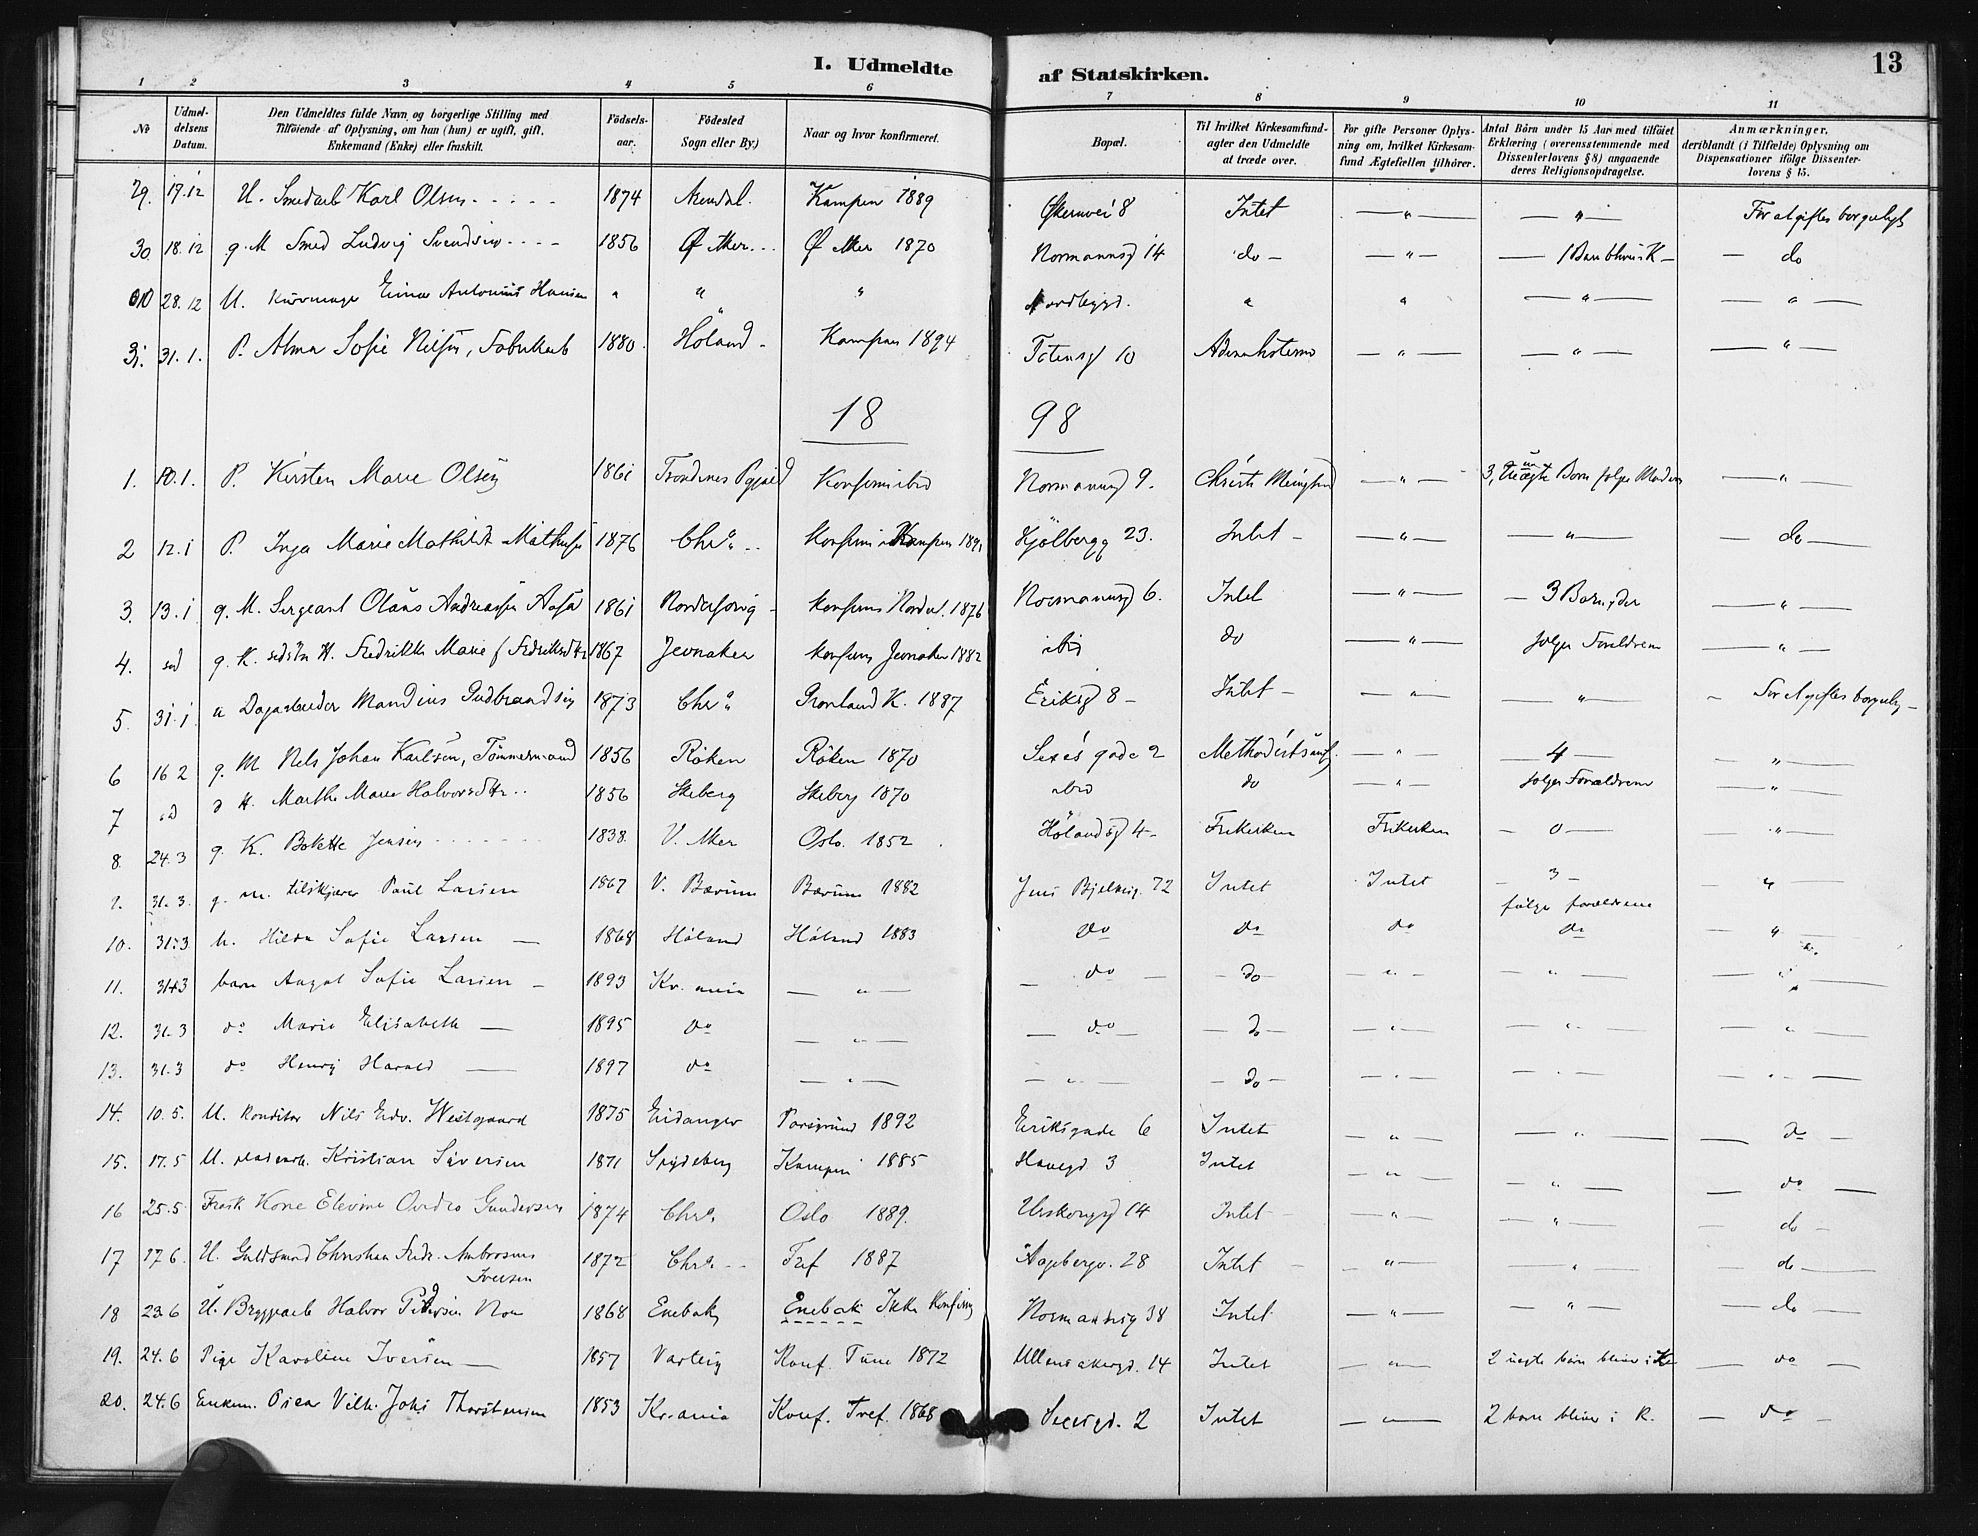 I. Udmeldte af Statskirken. 13
1 2 3 4 5 6 7 8 9 10 11
No
Udmeldelsens Datum.
Den Udmeldtes fulde Navn og borgerlige Stilling med
Tilföiende af Oplysning, om han (hun) er ugift, gift,
Enkemand (Enke) eller fraskilt.
Födselsaar.
Födested
Sogn eller By.)
Naar og hvor konfirmeret.
Bopæl.
Til hvilket Kirkesamfund-
agter den Udmeldte
at træde over.
For gifte Personer Oplys-
ning om, hvilket Kirkesam-
fund Ægtefællen tilhörer.
Antal Börn under 15 Aar med tilföiet
Erklæring (overensstemmende med
Dissenterlovens § 8) angaaende
deres Religionsopdragelse.
Anmærkninger,
deriblandt (i Tilfælde) Oplysning om
Dispensationer ifölge Dissenter-
lovens § 15.
29. 17.12 U. Smedarb Karl Olsen 1874 Arendal. Kampen 1889 Økernvei 8 Intet — " — — " — For at giftes borgerligt
30. 18.12 g. M Smed Ludvig Svendsen 1856 Ø Aker Ø Aker 1870 Normannsgd 14 do — — " — — 1 Barn — do
28.12 U. Kurvmager Einar Antonius Hansen " " " Nordbygd. " " — " — — " —
31. 31.1. P. Alma Sofie Nilsen, Fabrikarb 1880. Höland - Kampen 1894 Totensgd 10 — " — — " — — " —
18 98
1. 10.1. P. Kirsten Marie Olsen 1861 Trondenes Pgjeld Konfirm ibid Normannsgd 9. — " — 3, uægte Børn følger Moderen — " —
2 12.1 P. Inga Marie Mathilde Mathisen 1876 Chr.a Konfirm Kampen 1891 Kjölbergg 23. Intet — — " — — " — — do —
3. 13.1 g. M. Sergeant Olaus Andreassen Aasa 1861 Konfirm Norder. 1876 Normannsgd 6. Intet — " — — 3 Børn, der — " —
4. g. K. Fredrikke Marie f Fredriksdtr 1867 Jevnaker Konfirm Jevnaker 1882 ibid do — " — følger Forældrene — " —
5. 31.1 u Dagarbeider Mandius Gudbrandsen 1873 Chr.a Grønland K. 1887 Eriksgd 8 — Intet — — " — — " — — For at giftes borgerlig —
6 16 2 g. M Nels Johan Karlsen, Tömmermand 1856 Röken Röken 1870 Sexes gade 2 Methodistsamf. — " — — 4 — — " —
7 id d H. Marthe Marie Halvorsdtr 1856 Skeberg Skeberg 1870 ibid do — " — følger Forældrene — " —
8. 24.3 g. K. Bolette Jensen 1838. V. Aker Oslo. 1852 Hölandsgd 4 — Frikirken Frikirken — 0 — — " —
9. 31.3. g. m. tilskjærer Paul Larsen 1867 V. Bærum Bærum 1882 Jens Bjelkesg. 72 Intet Intet — 3 — — " —
følger forældrene
10. 31.3 h. Hilda Sofie Larsen — 1868 Höland Höland 1883 do do do do — " —
11. 31.3 barn Aagot Sofie Larsen — 1893 Kr.ania — " — — do — — do — — " — — " — — " —
12. 31.3 do Marie Elisabeth — 1895 do — " — — do — — do — — " — — " — — " —
13. 31.3 do Henry Harald — 1897 do — " — — " — — do — — " — — " — — " —
14. 10.5. U. Konditor Nils Edv. Westgaard 1875 Eidanger Porsgrund 1892 Eriksgade 6 Intet — " — — " — — do —
15. 17.5 U. Kristian Siversen 1871 Spydeberg Kampen 1885 Havegd 3 Intet — " — — " — — do —
16 25.5. Frask Kone Elevine Gundersen 1874 Chr.a Oslo 1889. Urskougsgd 14 Intet — " — — " — — do —
17 17 6. U. Guldsmed Christian Fredr. Ambrosius Iversen 1872 Chr.a Tref 1887 Aagebergv. 28 Intet — — " — — " — — do —
18 23.6 U. Bryggearb Halvor Pedersen 1868 Enebak Enebak Ikke Konfirm Normannsg 38 Intet — " — — " — — do —
19. 24.6 Pige Karoline Iversen — 1857 Varteig Konf. Tune 1872 Ullensakergd. 14 Intet — " — 2 uegte børn bliver i — do —
20. 24.6 Enkem. Oscar Vilh. Johs Thorstensen 1853 Kr.ania Konf. Tref. 1868 Sexesgd. 2 Intet — " — 2 barn bliver i K. — do —